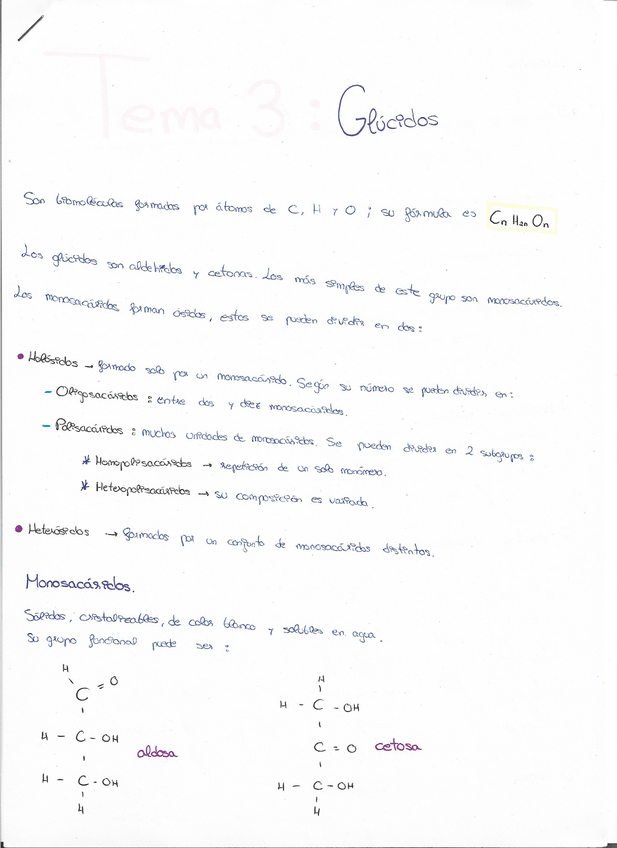 Tema 3: Glúcidos
Son biomoléculas formadas por átomos de C, H y O ; su fórmula es Cn H2n On
Los glúcidos son aldehídos y cetonas. Los más simples de este grupo son monosacáridos.
Los monosacáridos forman ósidos, estos se pueden dividir en dos :
• Holósidos → formado solo por un monosacárido. Según su número se pueden dividir en :
- Oligosacáridos : entre dos y diez monosacáridos.
- Polisacáridos : muchas unidades de monosacáridos. Se pueden dividir en 2 subgrupos :
* Homopolisacáridos → repetición de un solo monómero.
* Heteropolisacáridos → su composición es variada.
• Heterósidos → formados por un conjunto de monosacáridos distintos.
Monosacáridos.
Sólidos, cristalizables, de color blanco y solubles en agua.
Su grupo funcional puede ser :
H
C = O
H - C - OH
aldosa
H - C - OH
H
H
H - C - OH
C = O cetosa
H - C - OH
H